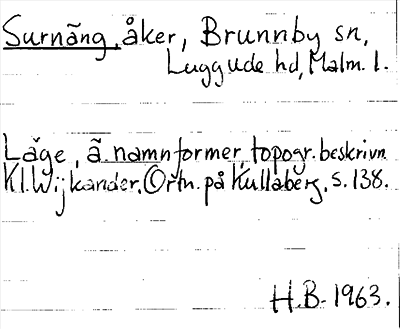 Surnäng, åker, Brunnby sn,
Luggude hd, Malm. l.
Läge, ä. namnformer, topogr. beskrivn.
Kl. Wijkander, Ortn. på Kullaberg, s. 138.
H.B. 1963.